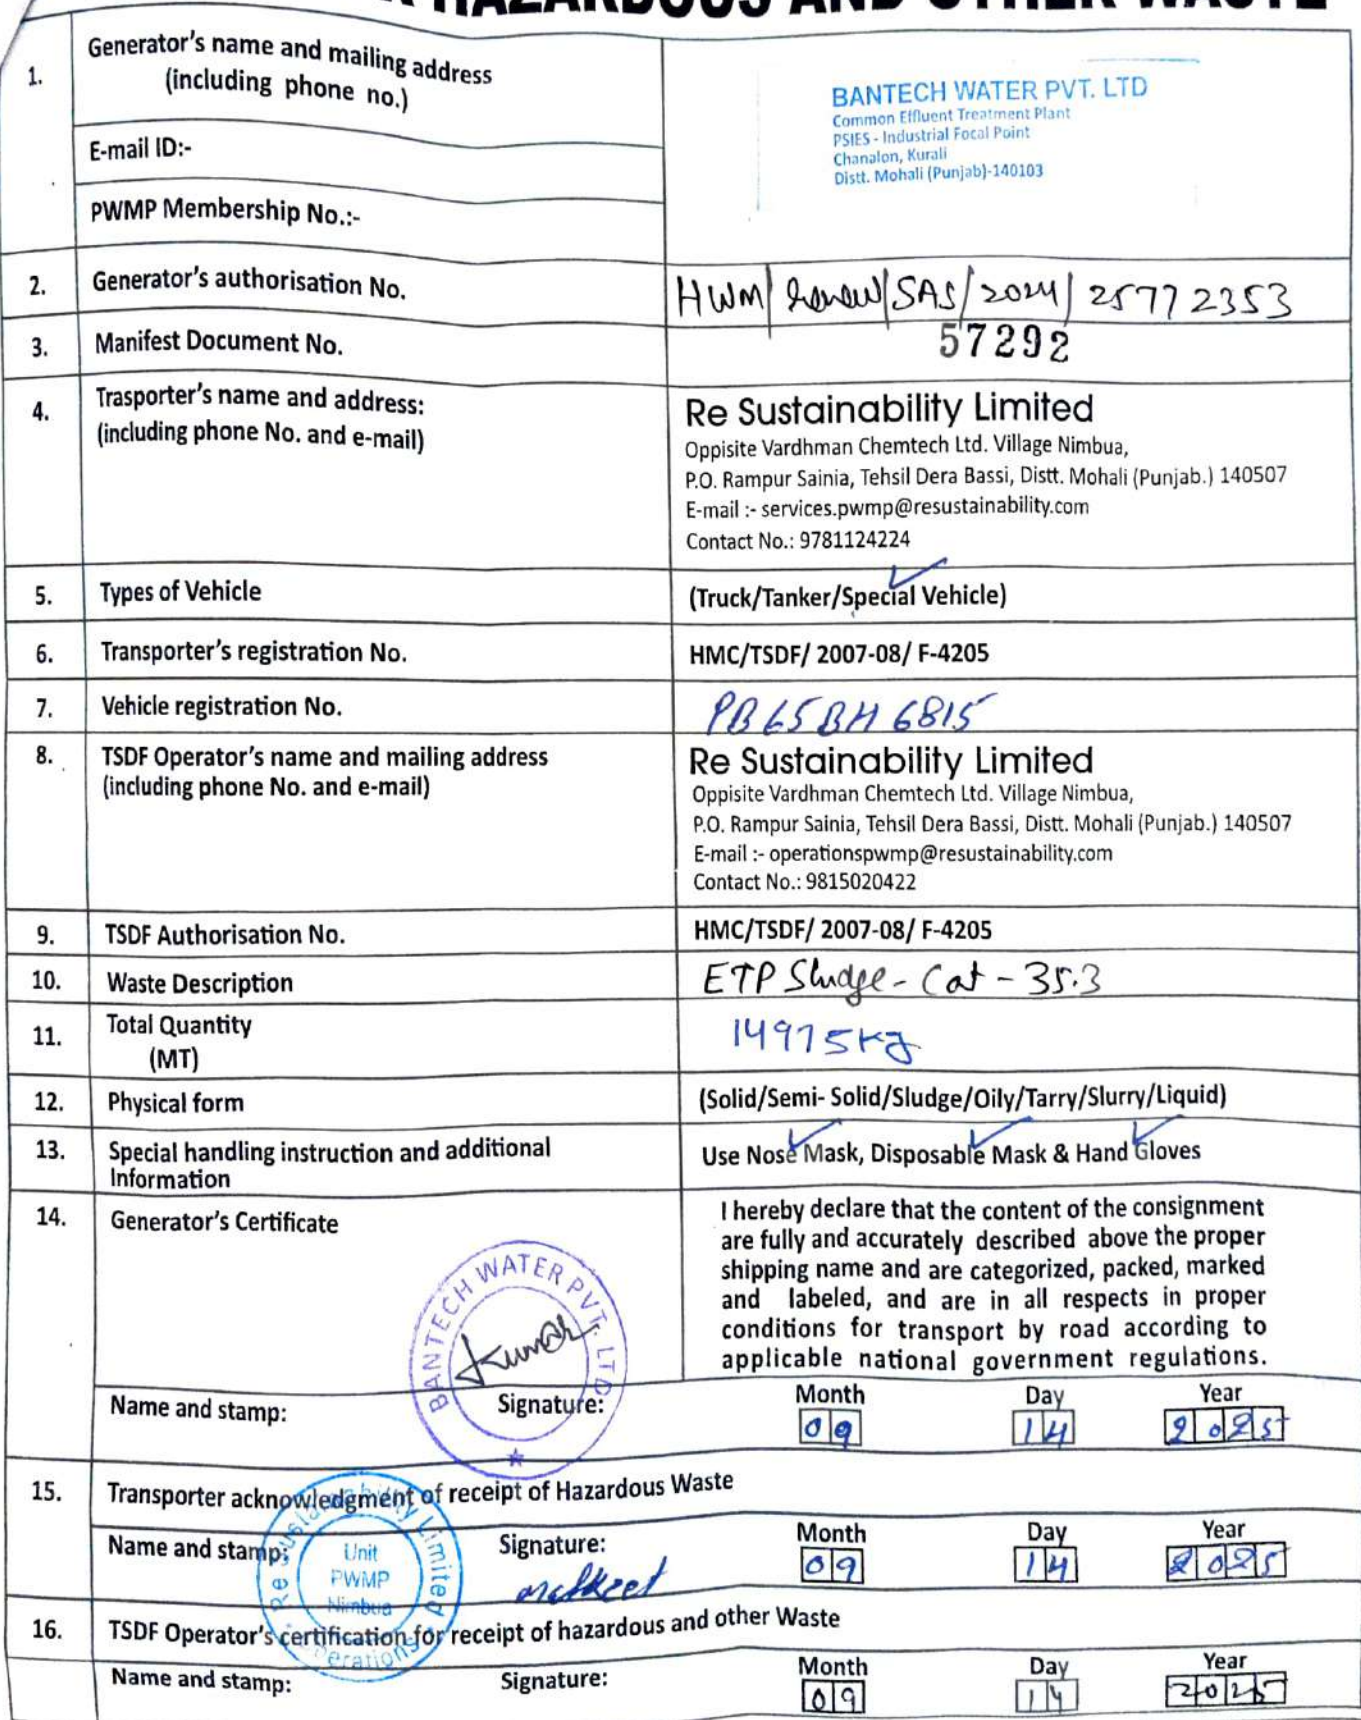 HAZARDOUS AND OTHER WASTE
1. Generator's name and mailing address
(including phone no.)
E-mail ID:-
PWMP Membership No.:-
BANTECH WATER PVT. LTD
Common Effluent Treatment Plant
PSIES - Industrial Focal Point
Chanalon, Kurali
Distt. Mohali (Punjab)-140103
2. Generator's authorisation No. HWM/Renew/SAS/2024/25772353
3. Manifest Document No. 57292
4. Trasporter's name and address:
(including phone No. and e-mail)
Re Sustainability Limited
Oppisite Vardhman Chemtech Ltd. Village Nimbua,
P.O. Rampur Sainia, Tehsil Dera Bassi, Distt. Mohali (Punjab.) 140507
E-mail :- services.pwmp@resustainability.com
Contact No.: 9781124224
5. Types of Vehicle (Truck/Tanker/Special Vehicle)
6. Transporter's registration No. HMC/TSDF/ 2007-08/ F-4205
7. Vehicle registration No. PB65BH6815
8. TSDF Operator's name and mailing address
(including phone No. and e-mail)
Re Sustainability Limited
Oppisite Vardhman Chemtech Ltd. Village Nimbua,
P.O. Rampur Sainia, Tehsil Dera Bassi, Distt. Mohali (Punjab.) 140507
E-mail :- operationspwmp@resustainability.com
Contact No.: 9815020422
9. TSDF Authorisation No. HMC/TSDF/ 2007-08/ F-4205
10. Waste Description ETP Sludge - Cat - 35.3
11. Total Quantity
(MT) 14975kg
12. Physical form (Solid/Semi- Solid/Sludge/Oily/Tarry/Slurry/Liquid)
13. Special handling instruction and additional
Information
Use Nose Mask, Disposable Mask & Hand Gloves
14. Generator's Certificate
I hereby declare that the content of the consignment
are fully and accurately described above the proper
shipping name and are categorized, packed, marked
and labeled, and are in all respects in proper
conditions for transport by road according to
applicable national government regulations.
BANTECH WATER PVT. LTD
Kumar
Name and stamp: Signature: Month Day Year
09 14 2025
15. Transporter acknowledgment of receipt of Hazardous Waste
Name and stamp: Signature: Month Day Year
09 14 2025
Re Sustainability Limited
Unit
PWMP
Nimbua
Operations
16. TSDF Operator's certification for receipt of hazardous and other Waste
Name and stamp: Signature: Month Day Year
09 14 2025